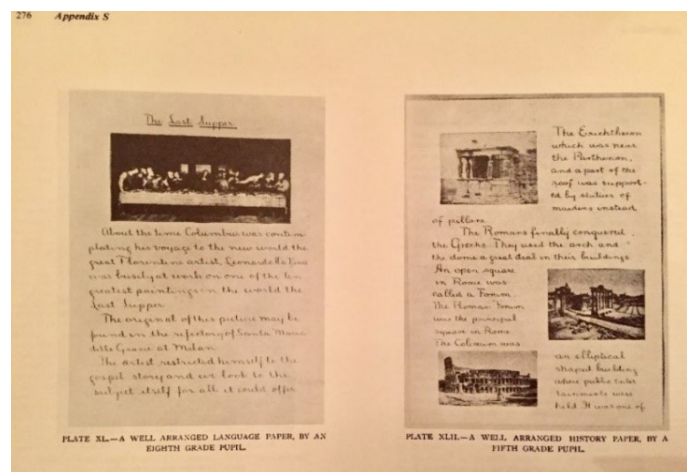 276 Appendix S
The Last Supper.
About the time Columbus was contem-
plating his voyage to the new world the
great Florentine artist, Leonardo da Vinci
was busily at work on one of the ten
greatest paintings in the world the
Last Supper.
The original of this picture may be
found in the refectory of Santa Maria
delle Grazie at Milan.
The artist restricted himself to the
gospel story and we look to the
subject itself for all it could offer
PLATE XL.—A WELL ARRANGED LANGUAGE PAPER, BY AN
EIGHTH GRADE PUPIL.
The Erechtheion
which was near
the Parthenon,
and a part of the
roof was support-
ed by statues of
maidens instead
of pillars.
The Romans finally conquered
the Greeks. They used the arch and
the dome a great deal in their buildings
An open square
in Rome was
called a Forum.
The Roman Forum
was the principal
square in Rome.
The Coliseum was
an elliptical
shaped building
where public enter
tainments were
held. It was one of
PLATE XLII.—A WELL ARRANGED HISTORY PAPER, BY A
FIFTH GRADE PUPIL.